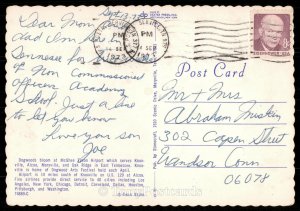 Sept 13, 73
Dear Mom
and I'm here in
Tennessee for
Non Commissioned
Officers Academy
School. Just a line
to let you know
I love you son
Joe
PM
1973
PM
EISENHOWER USA
Post Card
Mr + Mrs
Abraham Miskin
302 Capen Street
Windsor Conn
06078
Dogwoods bloom at McGhee Tyson Airport which serves Knox-
ville, Alcoa, Maryville, and Oak Ridge in East Tennessee. Knox-
ville is home of Dogwood Arts Festival held each April.
Airport is 10 miles south of Knoxville on U.S. 129 at Alcoa.
Five airlines provide direct service to 40 cities including Los
Angeles, New York, Chicago, Detroit, Cleveland, Dallas, Houston,
Pittsburgh, and Washington.